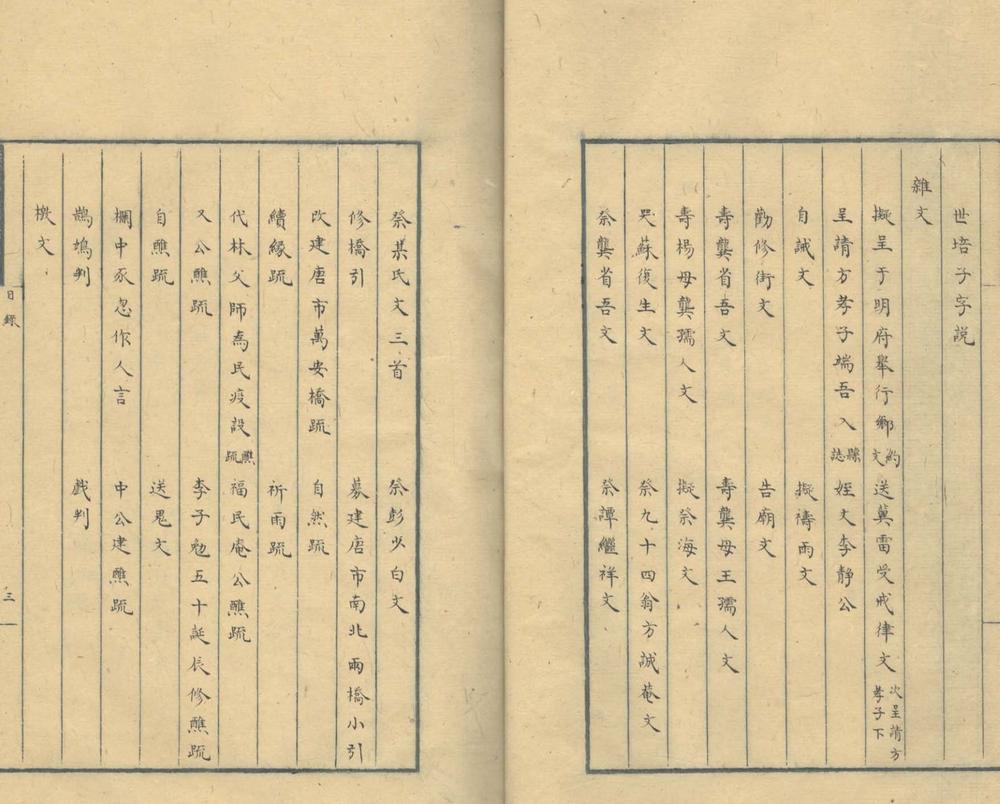 世培子字說
雜文
擬呈于明府舉行鄉約文 送蓂雷受戒律文 次呈請方孝子下
呈請方孝子端吾入縣誌 姪文李靜公
自誡文 擬禱雨文
勸修街文 告廟文
壽龔省吾文 壽龔母王孺人文
壽楊母龔孺人文 擬祭海文
哭蘇復生文 祭九十四翁方誠菴文
祭龔省吾文 祭譚繼祥文
祭某氏文三首 祭彭少白文
修橋引 募建唐市南北兩橋小引
改建唐市萬安橋疏 自然疏
續緣疏 祈雨疏
代林父師為民疫設醮疏 福民庵公醮疏
又公醮疏 李子勉五十誕辰修醮疏
自醮疏 送鬼文
欄中豕忽作人言 中公建醮疏
鵲鳩判 戲判
檄文
目錄
三